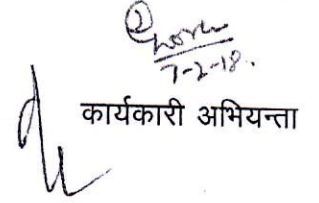 7-2-18.
कार्यकारी अभियन्ता